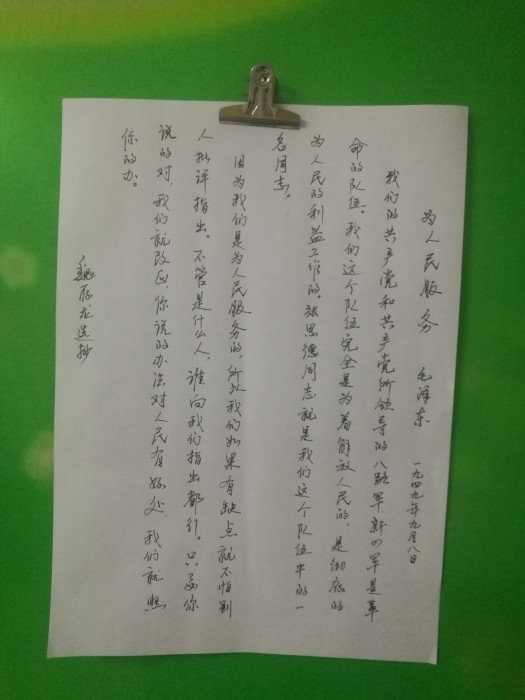 为人民服务 毛泽东 一九四九年九月八日
我们的共产党和共产党所领导的八路军、新四军是革
命的队伍。我们这个队伍完全是为着解放人民的，是彻底的
为人民的利益工作的。张思德同志就是我们这个队伍中的一
名同志。
因为我们是为人民服务的，所以我们如果有缺点就不怕别
人批评指出。不管是什么人，谁向我们指出都行。只要你
说的对，我们就改正，你说的办法对人民有好处 我们就照
你的办。
魏存龙选抄